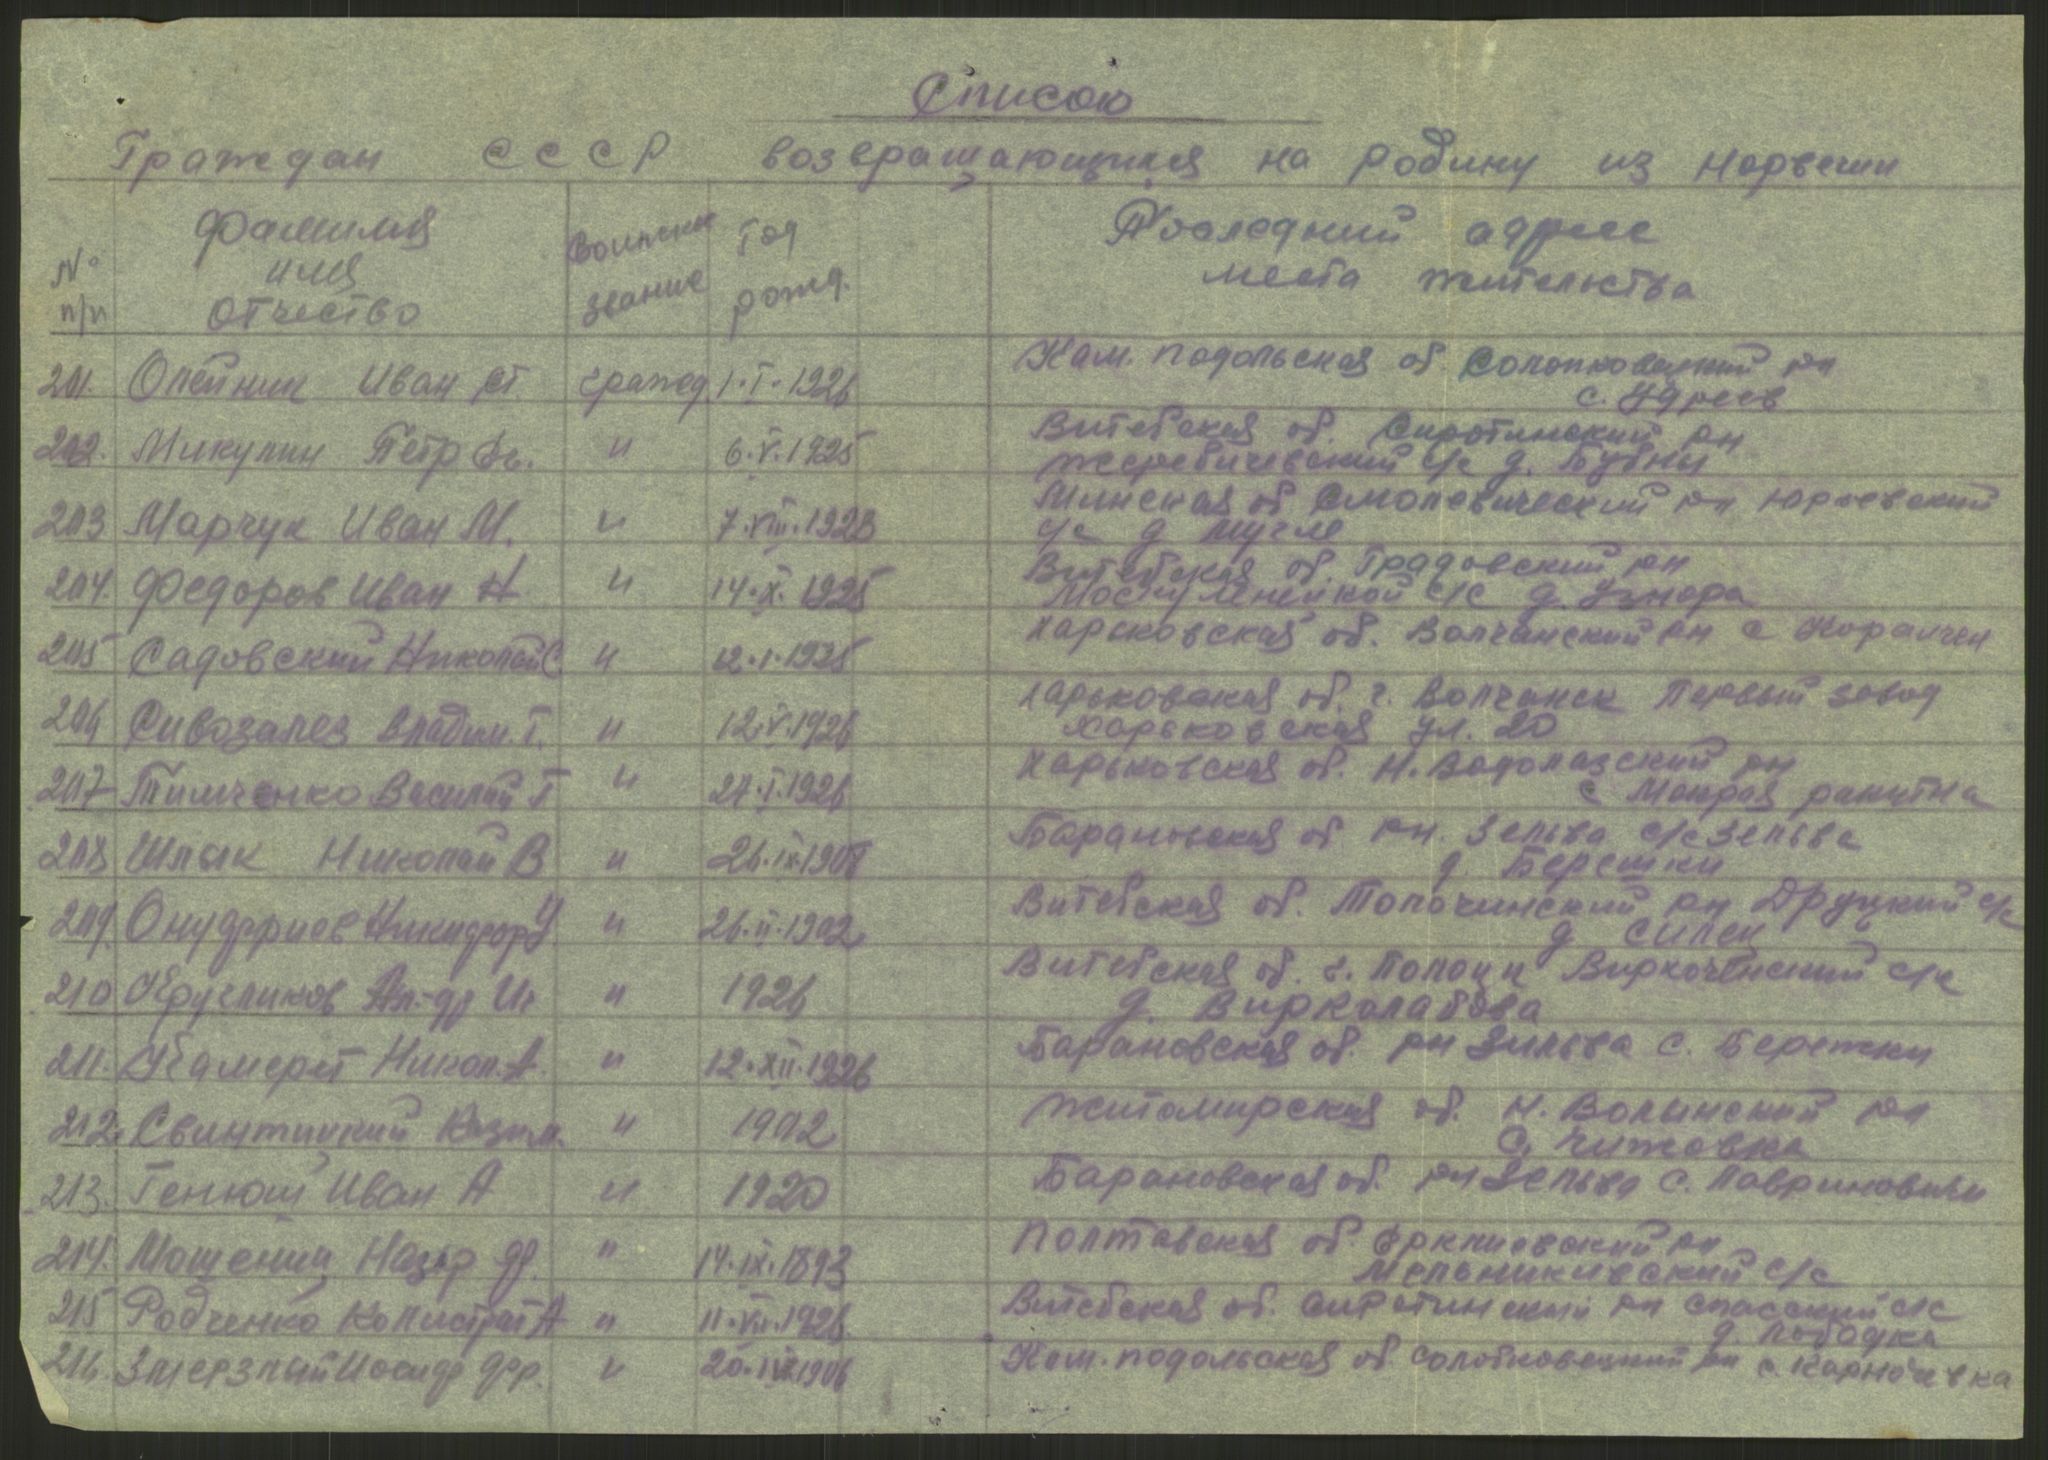 Список
Граждан СССР возвращающихся на родину из Норвегии
№ п/п
Фамилия имя отчество
Воинское звание
Год рожд.
Последний адрес места жительства
201. Олейник Иван Ст. гражд. 1.I.1926 Кам. подольская об. Солопковецкий рн
с. Удреев
202. Микулин Петр " 6.V.1925 Витебская об. Сиротинский рн
жеребичевский с/с д. Бубны
203 Марчук Иван М. " 7.VIII.1923 Минская об Смолевический рн Юрьевский
с/с д
204. Федоров Иван Н " 14.IX.1925 Витебская об. Градовский рн
с/с д.
205 Садовский Николай С. " 12.I.1925 Харьковская об. Волчанский рн с
206 Сивозалез Владим. Г. " 12.V.1926 Харьковская об. г. Волчанск Первый завод
Харьковская ул. 20
207 Тимченко Василий Г " 27.I.1926 Харьковская об. Н. Водолазский рн
с Мокрая ракитна
208 Шлык Николай В " 26.IX.1907 Барановская об рн. Зельва с/с Зельва
д. Берешки
209. Онуфриев Никифор У " 26.II.1902 Витебская об. Толочинский рн Друцкий с/с
д
210 Кругликов Ал-др Иг " 1926 Витебская об. г. Полоцк Виркоченский с/с
д. Вирколабова
211. Камерет Никол. А. " 12.XII.1926 Барановская об. рн Зильва с. Бережки
212. Свинтицкий Казим. " 1902 Житомирская об. Н. Волынский рн
с. Чижовка
213. Генюш Иван А " 1920 Барановская об. рн Зельва с. Лавриновичи
214. Мошений Назар Ф. " 14.IX.1893 Полтавская об. Ирклиевский рн
Мельникивский с/с
215 Родченко Калистрат А " 11.VII.1926 Витебская об. Сиротинский рн спасский с/с
д. Лободка
216. Змерзлый Иосиф Фр. " 1906 Кам. подольская об солобковецкий рн с. Карначевка